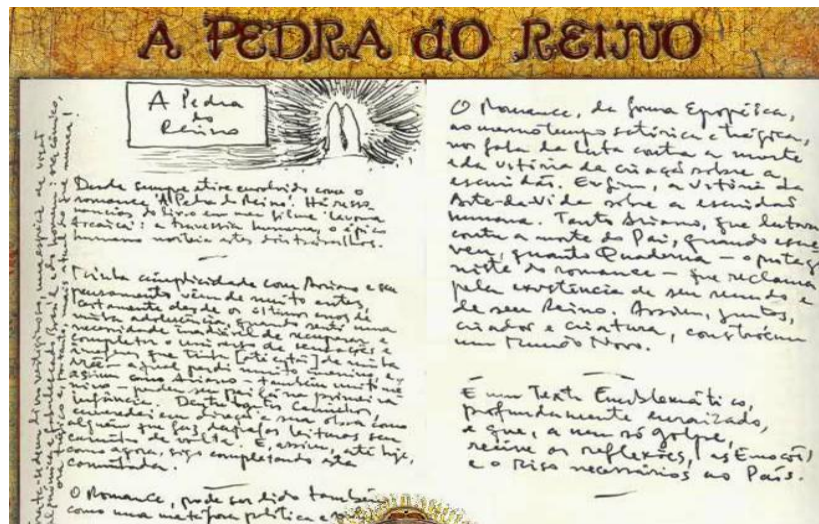 A PEDRA do REINO
A Pedra
do
Reino
Desde sempre estive envolvido com o
romance 'A Pedra do Reino'. Há resso
nâncias do livro em meu filme 'Lavoura
Arcaica': a travessia humana, o épico
humano
Minha cumplicidade com Ariano e seu
pensamento vêm de muito antes,
certamente desde os últimos anos de
minha adolescência, quando senti uma
necessidade de recuperar e
completar o universo de sensações e
imagens, que tinha [até então] de minha
mãe — a qual perdi muito menino e,
assim como Ariano — também muito me
nino — perdeu seu pai na primeira
infância. Dentre caminhos,
enveredei em direção a sua obra como
alguém que faz das leituras seu
caminho de volta. E, assim, até hoje,
como agora, sigo completando esta
O Romance, pode ser lido também
como uma metáfora política e
O Romance, da forma Epopéica,
ao mesmo tempo satírica e trágica,
nos fala da luta contra a morte
e da vitória da criação sobre a
escuridão. Enfim, a vitória da
Arte-da-Vida sobre a escuridão
humana. Tanto Ariano, que lutou
contra a morte do Pai, quando escre
veu, quanto Quaderna — o protago
nista do romance — que reclama
pela existência de seu mundo e
de seu Reino. Assim, juntos,
criador e criatura, constroem
um Mundo Novo.
É um Texto Emblemático,
profundamente enraizado,
e que, a um só golpe,
reúne as reflexões, as Emoções
e o Riso necessários ao País.